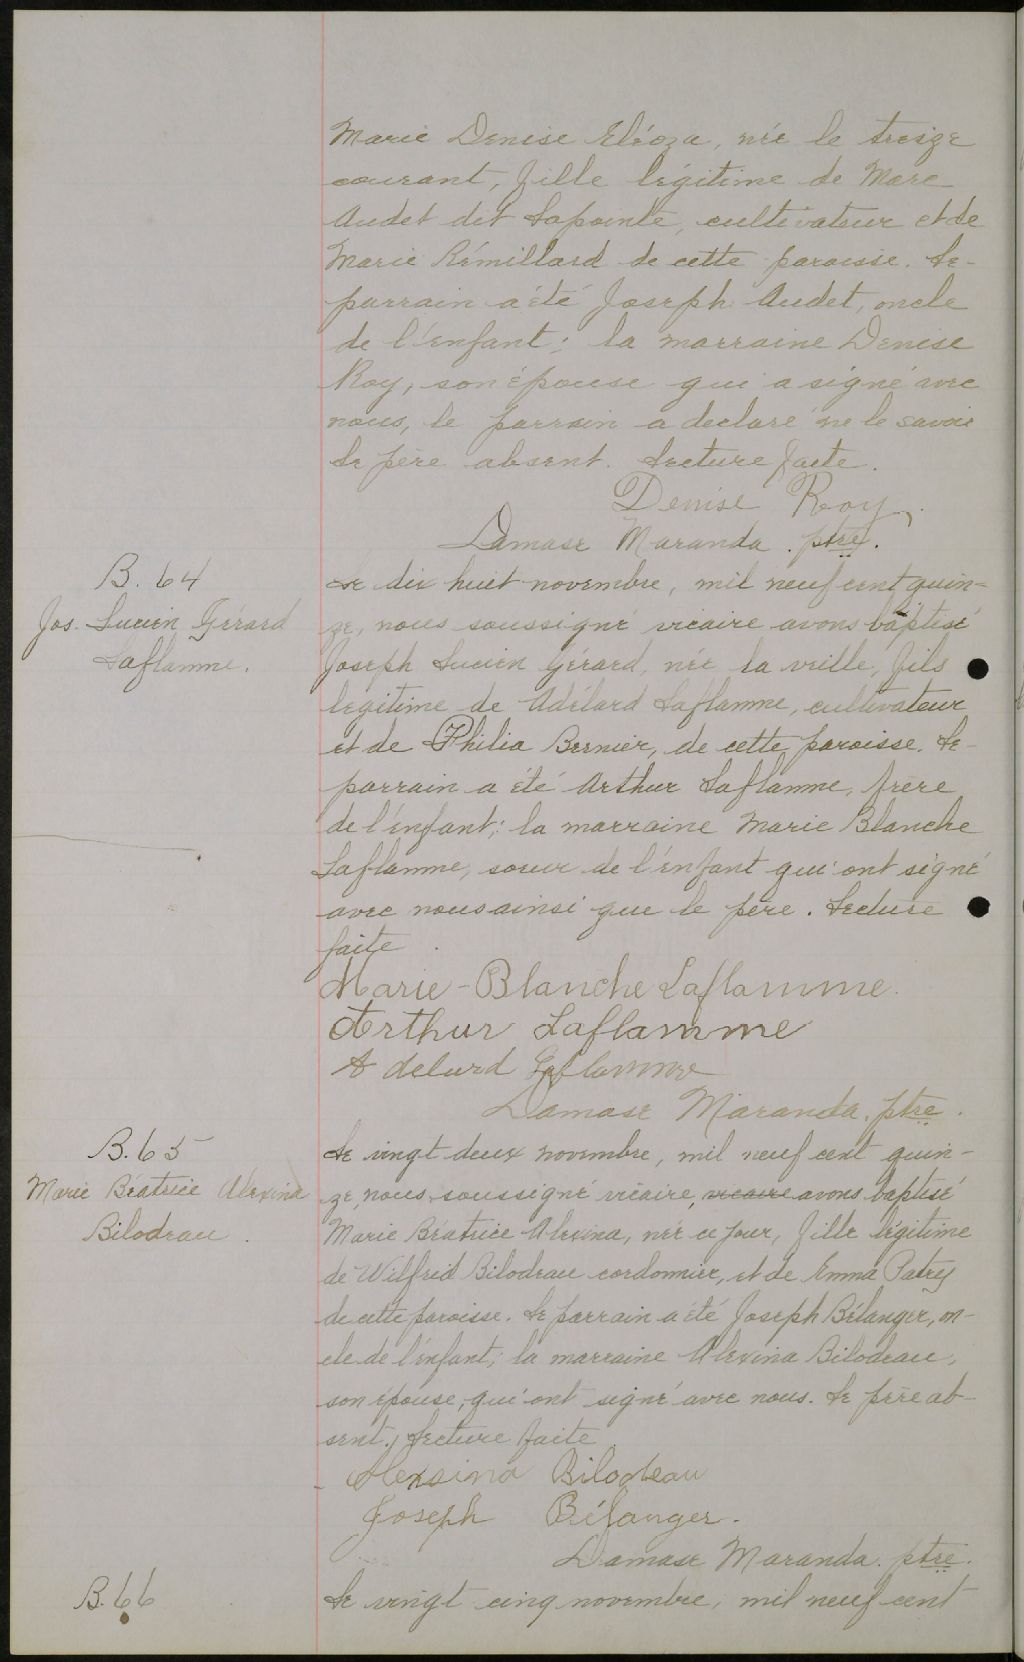 Marie Denise Eléoza, née le treize
courant, fille légitime de Marc
Audet dit Lapointe, cultivateur et de
Marie Rémillard de cette paroisse. Le
parrain a été Joseph Audet, oncle
de l'enfant; la marraine Denise
Roy, son épouse qui a signé avec
nous, le parrain a déclaré ne le savoir
Le père absent. Lecture faite.
Denise Roy
Damase Maranda. ptre.
B. 64
Jos. Lucien Gérard
Laflamme.
Le dix huit novembre, mil neuf cent quin-
ze, nous soussigné vicaire avons baptisé
Joseph Lucien Gérard, née la veille, fils
légitime de Adélard Laflamme, cultivateur
et de Philia Bernier, de cette paroisse. Le
parrain a été Arthur Laflamme, frère
de l'enfant; la marraine Marie Blanche
Laflamme, soeur de l'enfant qui ont signé
avec nous ainsi que le père. Lecture
faite.
Marie-Blanche Laflamme.
Arthur Laflamme
Adelard Laflamme
Damase Maranda. ptre.
B. 65
Marie Béatrice Alexina
Bilodeau.
Le vingt deux novembre, mil neuf cent quin-
ze, nous soussigné vicaire, vicaire avons baptisé
Marie Béatrice Alexina, née ce jour, fille légitime
de Wilfrid Bilodeau cordonnier, et de Emma Patry
de cette paroisse. Le parrain a été Joseph Bélanger, on-
cle de l'enfant; la marraine Alexina Bilodeau,
son épouse, qui ont signé avec nous. Le père ab-
sent. Lecture faite
Alexsina Bilodeau
Joseph Bélanger.
Damase Maranda. ptre.
B. 66
Le vingt cinq novembre, mil neuf cent